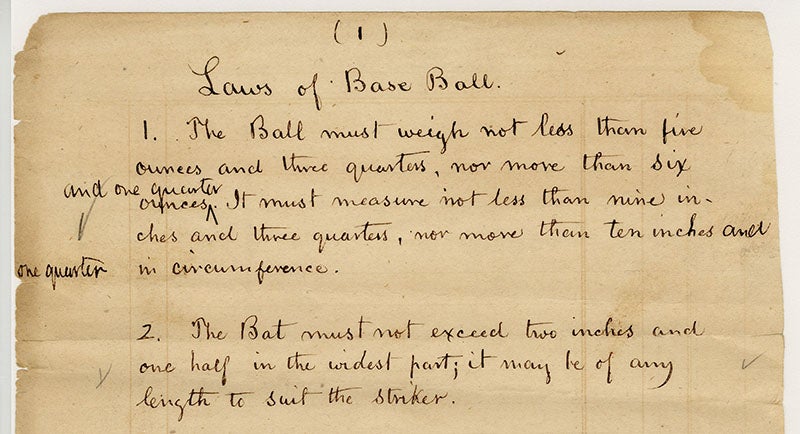 ( 1 )
Laws of Base Ball.
1. The Ball must weigh not less than five
ounces and three quarters, nor more than six
and one quarter
ounces. It must measure not less than nine in-
ches and three quarters, nor more than ten inches and
one quarter in circumference.
2. The Bat must not exceed two inches and
one half in the widest part; it may be of any
length to suit the striker.